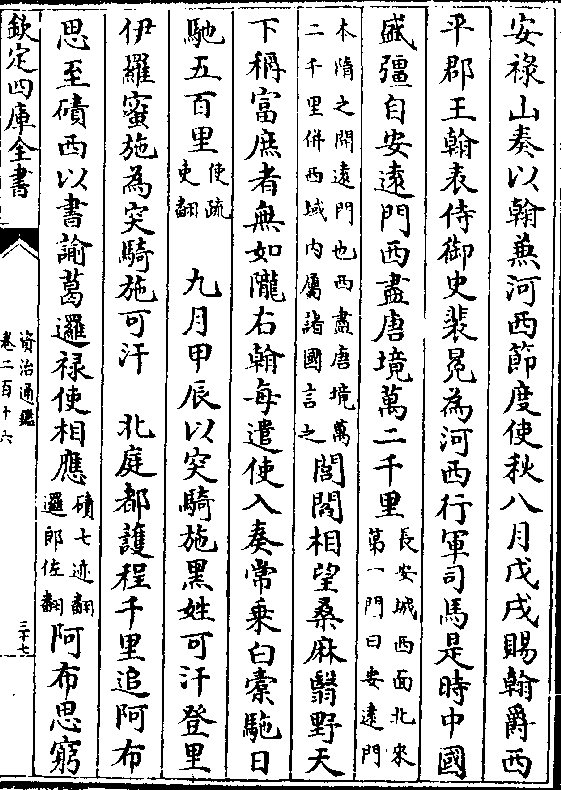 安祿山奏以翰兼河西節度使秋八月戊戌賜翰爵西
平郡王翰表侍御史裴冕為河西行軍司馬是時中國
盛彊自安逺門西盡唐境萬二千里
長安城西面北來
第一門曰安逺門
本隋之開逺門也西盡唐境萬
二千里併西域内屬諸國言之
閭閻相望桑麻翳野天
下稱富庶者無如隴右翰每遣使入奏常乗白槖駞日
馳五百里
使疏
吏翻
九月甲辰以突騎施黒姓可汗登里
伊羅蜜施為突騎施可汗 北庭都護程千里追阿布
思至磧西以書諭葛邏禄使相應
磧七迹翻
邏郎佐翻
阿布思窮
欽定四庫全書
資治通鑑
卷二百十六
三十七